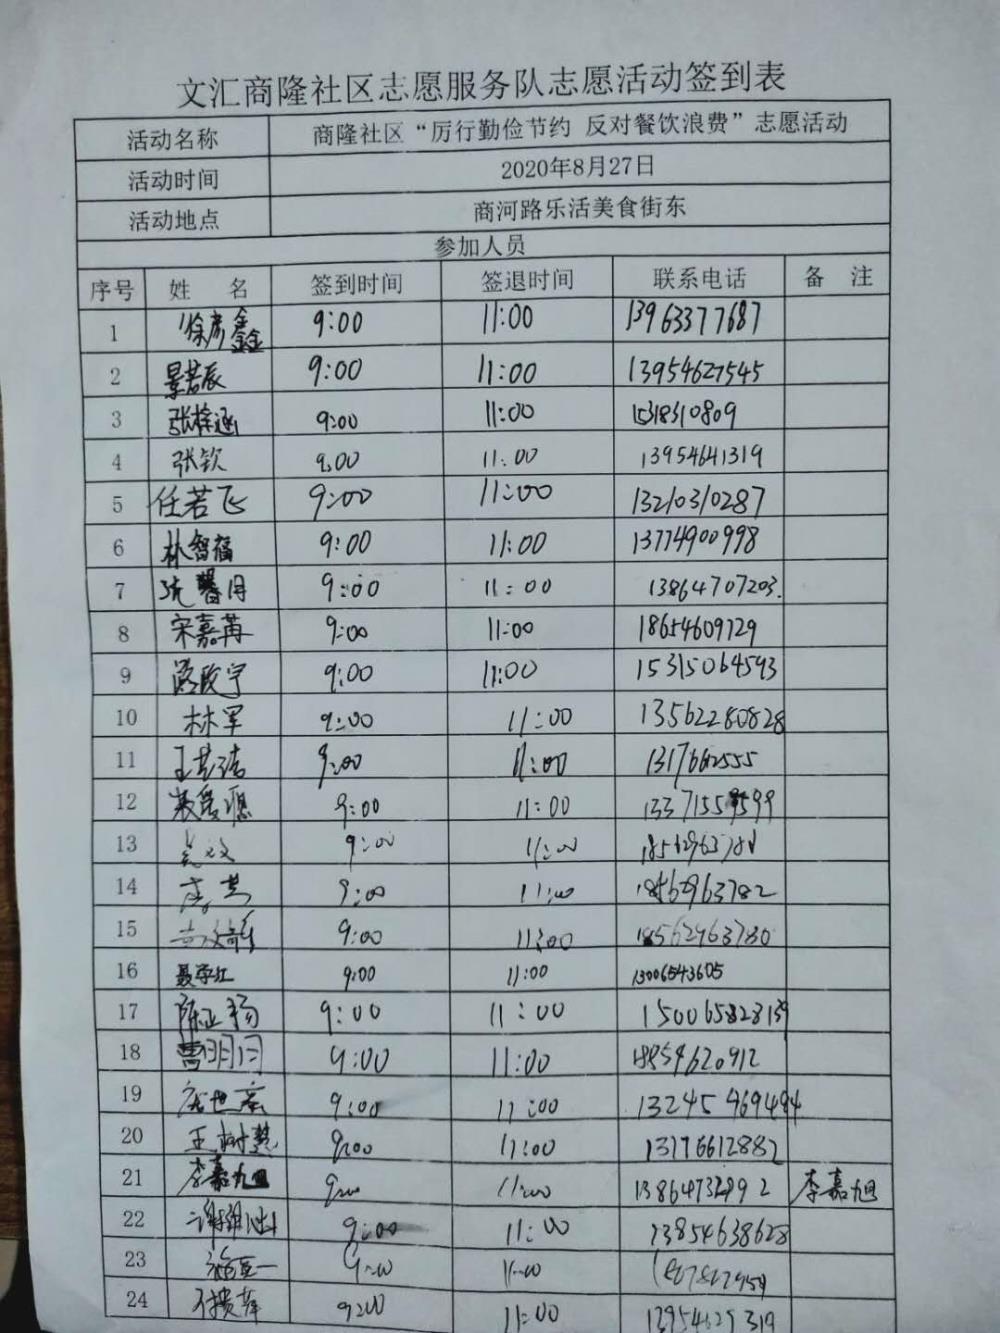 文汇商隆社区志愿服务队志愿活动签到表
活动名称 商隆社区“厉行勤俭节约 反对餐饮浪费”志愿活动
活动时间 2020年8月27日
活动地点 商河路乐活美食街东
参加人员
序号 姓 名 签到时间 签退时间 联系电话 备 注
1 徐彦鑫 9:00 11:00 13963377687
2 景若辰 9:00 11:00 13954627545
3 张梓涵 9:00 11:00 15318310809
4 张钦 9:00 11:00 13954641319
5 任若飞 9:00 11:00 13210310287
6 林智福 9:00 11:00 13774900998
7 9:00 11:00 13864707203
8 宋嘉苒 9:00 11:00 18654609729
9 9:00 11:00 15315064593
10 林军 9:00 11:00 13562280828
11 9:00 11:00
12 9:00 11:00
13 9:00 11:00
14 9:00 11:00 18562963782
15 9:00 11:00 18562963780
16 聂学红 9:00 11:00 13006543605
17 陈正扬 9:00 11:00
18 9:00 11:00 18854620912
19 9:00 11:00
20 王树慧 9:00 11:00 13176612882
21 李嘉旭 9:00 11:00 李嘉旭
22 9:00 11:00 13854638628
23 9:00 11:00
24 9:00 11:00 13954625319